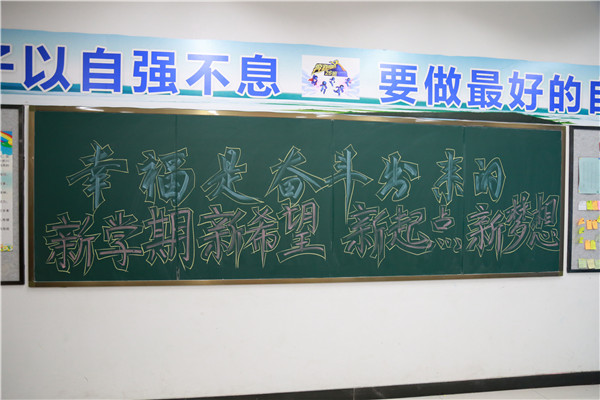 子以自强不息 要做最好的自
幸福是奋斗出来的
新学期新希望 新起点新梦想